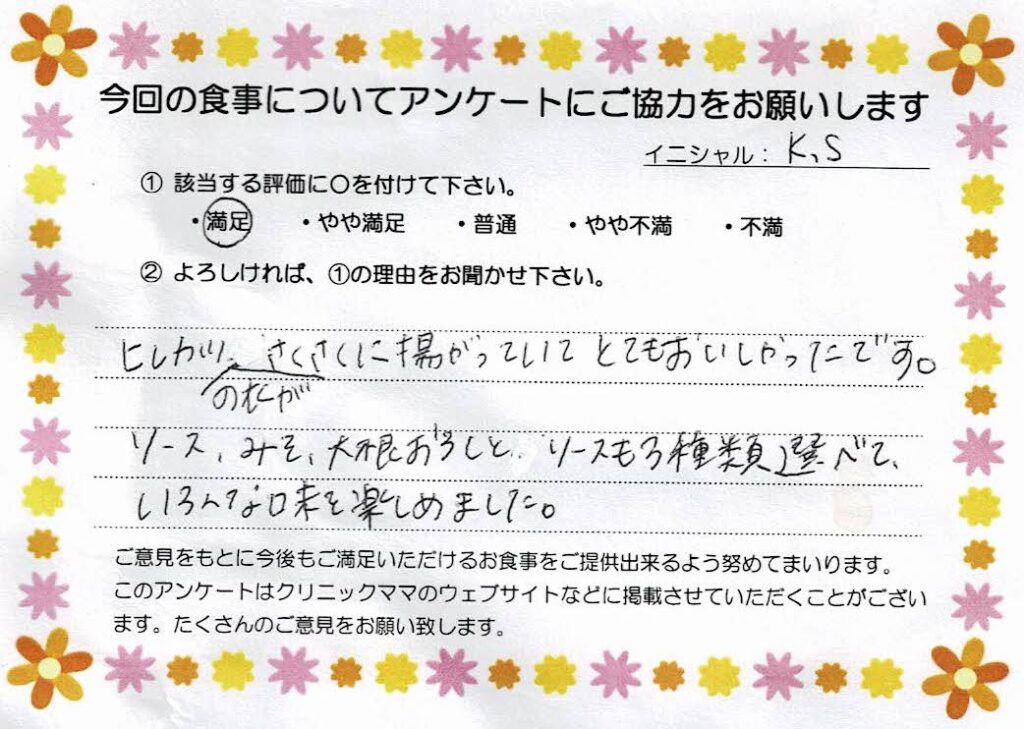 今回の食事についてアンケートにご協力をお願いします
イニシャル： K、S
① 該当する評価に〇を付けて下さい。
・満足 ・やや満足 ・普通 ・やや不満 ・不満
② よろしければ、①の理由をお聞かせ下さい。
ヒレカツ、さくさくに揚がっていてとてもおいしかったです。
の衣が
ソース、みそ、大根おろしと、ソースも3種類選べて、
いろんな味を楽しめました。
ご意見をもとに今後もご満足いただけるお食事をご提供出来るよう努めてまいります。
このアンケートはクリニックママのウェブサイトなどに掲載させていただくことがござい
ます。たくさんのご意見をお願い致します。